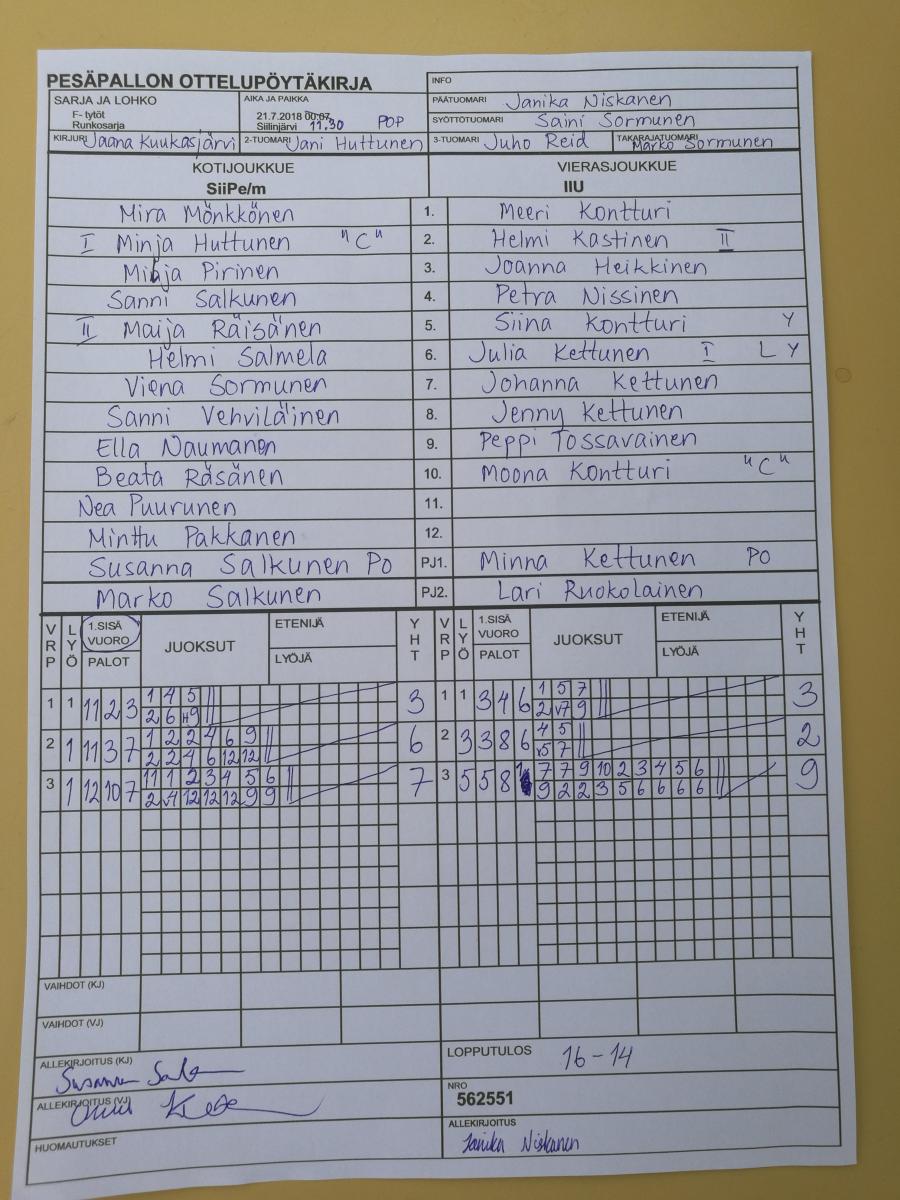 PESÄPALLON OTTELUPÖYTÄKIRJA
INFO
SARJA JA LOHKO
F- tytöt
Runkosarja
AIKA JA PAIKKA
21.7.2018 00:07
Siilinjärvi 11.30 POP
PÄÄTUOMARI Janika Niskanen
SYÖTTÖTUOMARI Saini Sormunen
KIRJURI Jaana Kuukasjärvi
2-TUOMARI Jani Huttunen
3-TUOMARI Juho Reid
TAKARAJATUOMARI Marko Sormunen
KOTIJOUKKUE
SiiPe/m
VIERASJOUKKUE
IIU
Mira Mönkkönen 1. Meeri Kontturi
I Minja Huttunen "C" 2. Helmi Kastinen II
Minja Pirinen 3. Joanna Heikkinen
Sanni Salkunen 4. Petra Nissinen
II Maija Räisänen 5. Siina Kontturi Y
Helmi Salmela 6. Julia Kettunen I L Y
Viena Sormunen 7. Johanna Kettunen
Sanni Vehviläinen 8. Jenny Kettunen
Ella Naumanen 9. Peppi Tossavainen
Beata Räsänen 10. Moona Kontturi "C"
Nea Puurunen 11.
Minttu Pakkanen 12.
Susanna Salkunen PO PJ1. Minna Kettunen PO
Marko Salkunen PJ2. Lari Ruokolainen
VRP LYÖ 1.SISÄ VUORO PALOT JUOKSUT ETENIJÄ LYÖJÄ YHT VRP LYÖ 1.SISÄ VUORO PALOT JUOKSUT ETENIJÄ LYÖJÄ YHT
1 1 11 2 3 1 4 5 3 1 1 3 4 6 1 5 7 3
2 6 H9 2 v7 9
2 1 11 3 7 1 2 2 4 6 9 6 2 3 3 8 6 4 5 2
2 2 4 6 12 12 v5 7
3 1 12 10 7 11 1 2 3 4 5 6 7 3 5 5 8 7 7 9 10 2 3 4 5 6 9
2 v4 12 12 12 9 9 9 2 2 3 5 6 6 6 6
VAIHDOT (KJ)
VAIHDOT (VJ)
ALLEKIRJOITUS (KJ)
LOPPUTULOS 16-14
ALLEKIRJOITUS (VJ)
NRO
562551
HUOMAUTUKSET
ALLEKIRJOITUS
Janika Niskanen